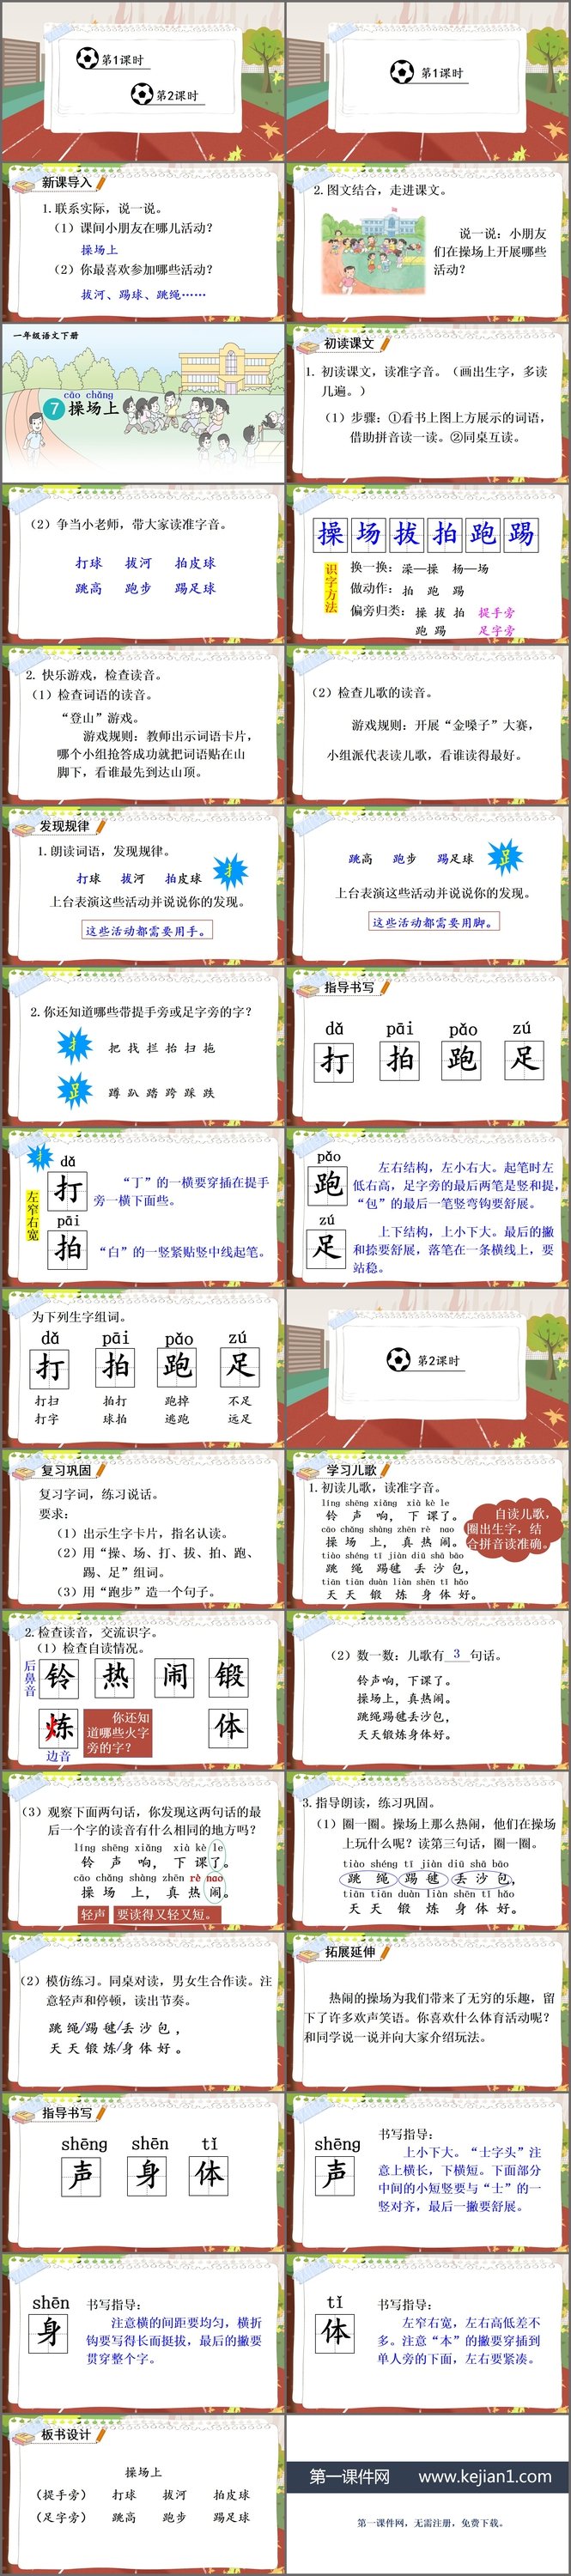 第1课时
第2课时
第1课时
新课导入
1.联系实际，说一说。
（1）课间小朋友在哪儿活动？
操场上
（2）你最喜欢参加哪些活动？
拔河、踢球、跳绳……
2.图文结合，走进课文。
说一说：小朋友
们在操场上开展哪些
活动？
一年级语文下册
cāo chǎng
7 操场上
初读课文
1. 初读课文，读准字音。（画出生字，多读
几遍。）
（1）步骤：①看书上图上方展示的词语，
借助拼音读一读。②同桌互读。
（2）争当小老师，带大家读准字音。
打球 拔河 拍皮球
跳高 跑步 踢足球
操 场 拔 拍 跑 踢
识字方法
换一换：澡—操 杨—场
做动作：拍 跑 踢
偏旁归类：操 拔 拍 提手旁
跑 踢 足字旁
2. 快乐游戏，检查读音。
（1）检查词语的读音。
“登山”游戏。
游戏规则：教师出示词语卡片，
哪个小组抢答成功就把词语贴在山
脚下，看谁最先到达山顶。
（2）检查儿歌的读音。
游戏规则：开展“金嗓子”大赛，
小组派代表读儿歌，看谁读得最好。
发现规律
1.朗读词语，发现规律。
打球 拔河 拍皮球 扌
上台表演这些活动并说说你的发现。
这些活动都需要用手。
跳高 跑步 踢足球 𧾷
上台表演这些活动并说说你的发现。
这些活动都需要用脚。
2.你还知道哪些带提手旁或足字旁的字？
扌 把 找 拦 抬 扫 拖
𧾷 蹲 趴 踏 跨 踩 跌
指导书写
dǎ pāi pǎo zú
打 拍 跑 足
扌
左窄右宽
dǎ
打
“丁”的一横要穿插在提手
旁一横下面些。
pāi
拍
“白”的一竖紧贴竖中线起笔。
pǎo
跑
左右结构，左小右大。起笔时左
低右高，足字旁的最后两笔是竖和提，
“包”的最后一笔竖弯钩要舒展。
zú
足
上下结构，上小下大。最后的撇
和捺要舒展，落笔在一条横线上，要
站稳。
为下列生字组词。
dǎ pāi pǎo zú
打 拍 跑 足
打扫 拍打 跑掉 不足
打字 球拍 逃跑 远足
第2课时
复习巩固
复习字词，练习说话。
要求：
（1）出示生字卡片，指名认读。
（2）用“操、场、打、拔、拍、跑、
踢、足”组词。
（3）用“跑步”造一个句子。
学习儿歌
1.初读儿歌，读准字音。
líng shēng xiǎng xià kè le
铃 声 响，下 课 了。
cāo chǎng shàng zhēn rè nao
操 场 上，真 热 闹。
tiào shéng tī jiàn diū shā bāo
跳 绳 踢毽 丢 沙 包，
tiān tiān duàn liàn shēn tǐ hǎo
天 天 锻 炼 身 体 好。
自读儿歌，
圈出生字，结
合拼音读准确。
2.检查读音，交流识字。
（1）检查自读情况。
后鼻音
铃 热 闹 锻
炼 体
边音
你还知
道哪些火字
旁的字？
（2）数一数：儿歌有 3 句话。
铃声响，下课了。
操场上，真热闹。
跳绳踢毽丢沙包，
天天锻炼身体好。
（3）观察下面两句话，你发现这两句话的最
后一个字的读音有什么相同的地方吗？
líng shēng xiǎng xià kè le
铃 声 响，下 课 了。
cāo chǎng shàng zhēn rè nao
操 场 上，真 热 闹。
轻声 要读得又轻又短。
3.指导朗读，练习巩固。
（1）圈一圈。操场上那么热闹，他们在操场
上玩什么呢？读第三句话，圈一圈。
tiào shéng tī jiàn diū shā bāo
跳 绳 踢 毽 丢 沙 包，
tiān tiān duàn liàn shēn tǐ hǎo
天 天 锻 炼 身 体 好。
（2）模仿练习。同桌对读，男女生合作读。注
意轻声和停顿，读出节奏。
跳 绳/踢 毽/丢 沙 包，
天 天 锻 炼/身 体 好。
拓展延伸
热闹的操场为我们带来了无穷的乐趣，留
下了许多欢声笑语。你喜欢什么体育活动呢？
和同学说一说并向大家介绍玩法。
指导书写
shēng shēn tǐ
声 身 体
shēng
声
书写指导：
上小下大。“士字头”注
意上横长，下横短。下面部分
中间的小短竖要与“士”的一
竖对齐，最后一撇要舒展。
shēn
身
书写指导：
注意横的间距要均匀，横折
钩要写得长而挺拔，最后的撇要
贯穿整个字。
tǐ
体
书写指导：
左窄右宽，左右高低差不
多。注意“本”的撇要穿插到
单人旁的下面，左右要紧凑。
板书设计
操场上
（提手旁） 打球 拔河 拍皮球
（足字旁） 跳高 跑步 踢足球
第一课件网 www.kejian1.com
第一课件网，无需注册，免费下载。